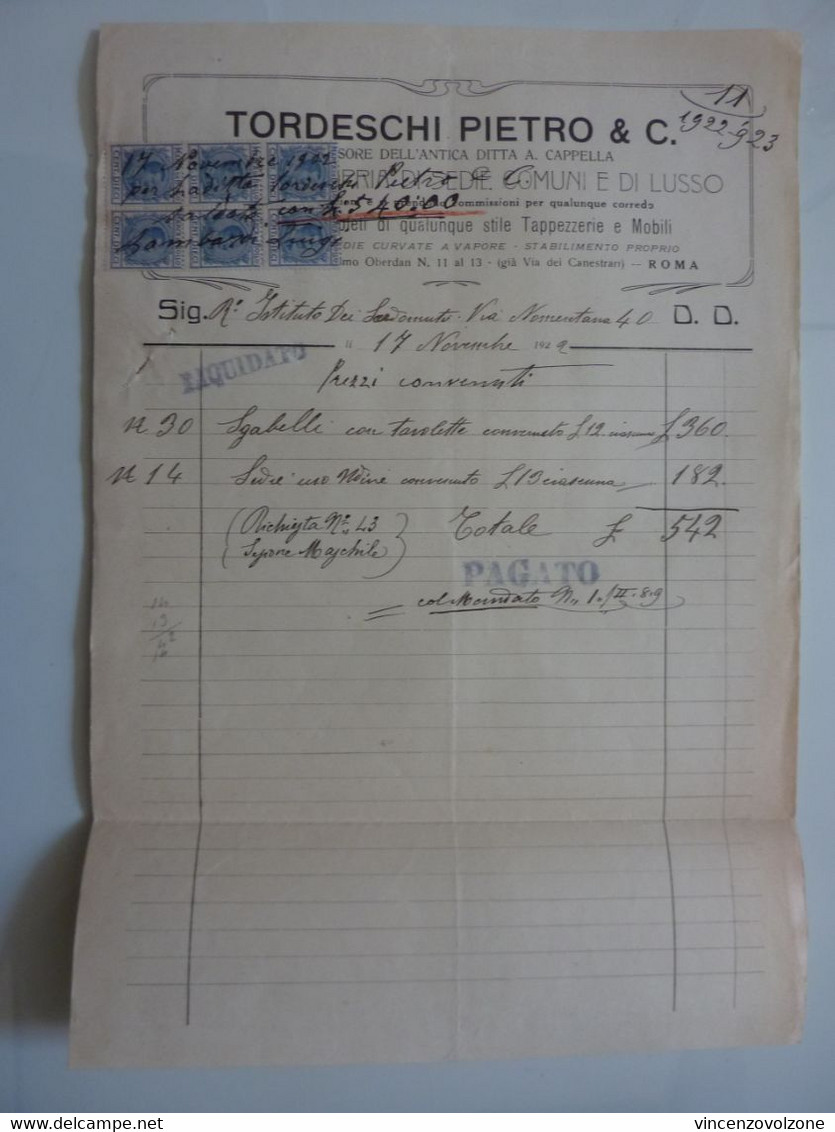 11
1922-923
TORDESCHI PIETRO & C.
SORE DELL'ANTICA DITTA A. CAPPELLA
DI SEDIE COMUNI E DI LUSSO
commissioni per qualunque corredo
di qualunque stile Tappezzerie e Mobili
EDIE CURVATE A VAPORE - STABILIMENTO PROPRIO
mo Oberdan N. 11 al 13 - (già Via dei Canestrari) — ROMA
17 Novembre 1922
per la ditta Tordeschi Pietro & C.
saldato con £ 540.00
Luigi
Sig. R.º Istituto Dei Sordomuti. Via Nomentana 40 D. D.
li 17 Novembre 1922
LIQUIDATO
Prezzi convenuti
N 30 Sgabelli con tavolette convenuto £ 12 ciascuno £ 360.
N 14 Sedie uso Udine convenuto £ 13 ciascuna 182.
(Richiesta Nº 43 Totale £ 542
Sezione Maschile)
PAGATO
col Mandato N. 1./II.8.9
delcampe.net
vincenzovolzone